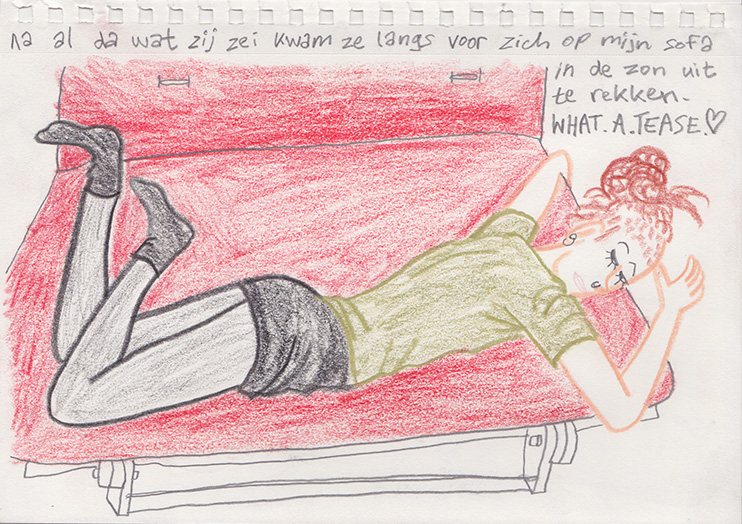 na al da wat zij zei kwam ze langs voor zich op mijn sofa
in de zon uit
te rekken.
WHAT.A.TEASE.♡